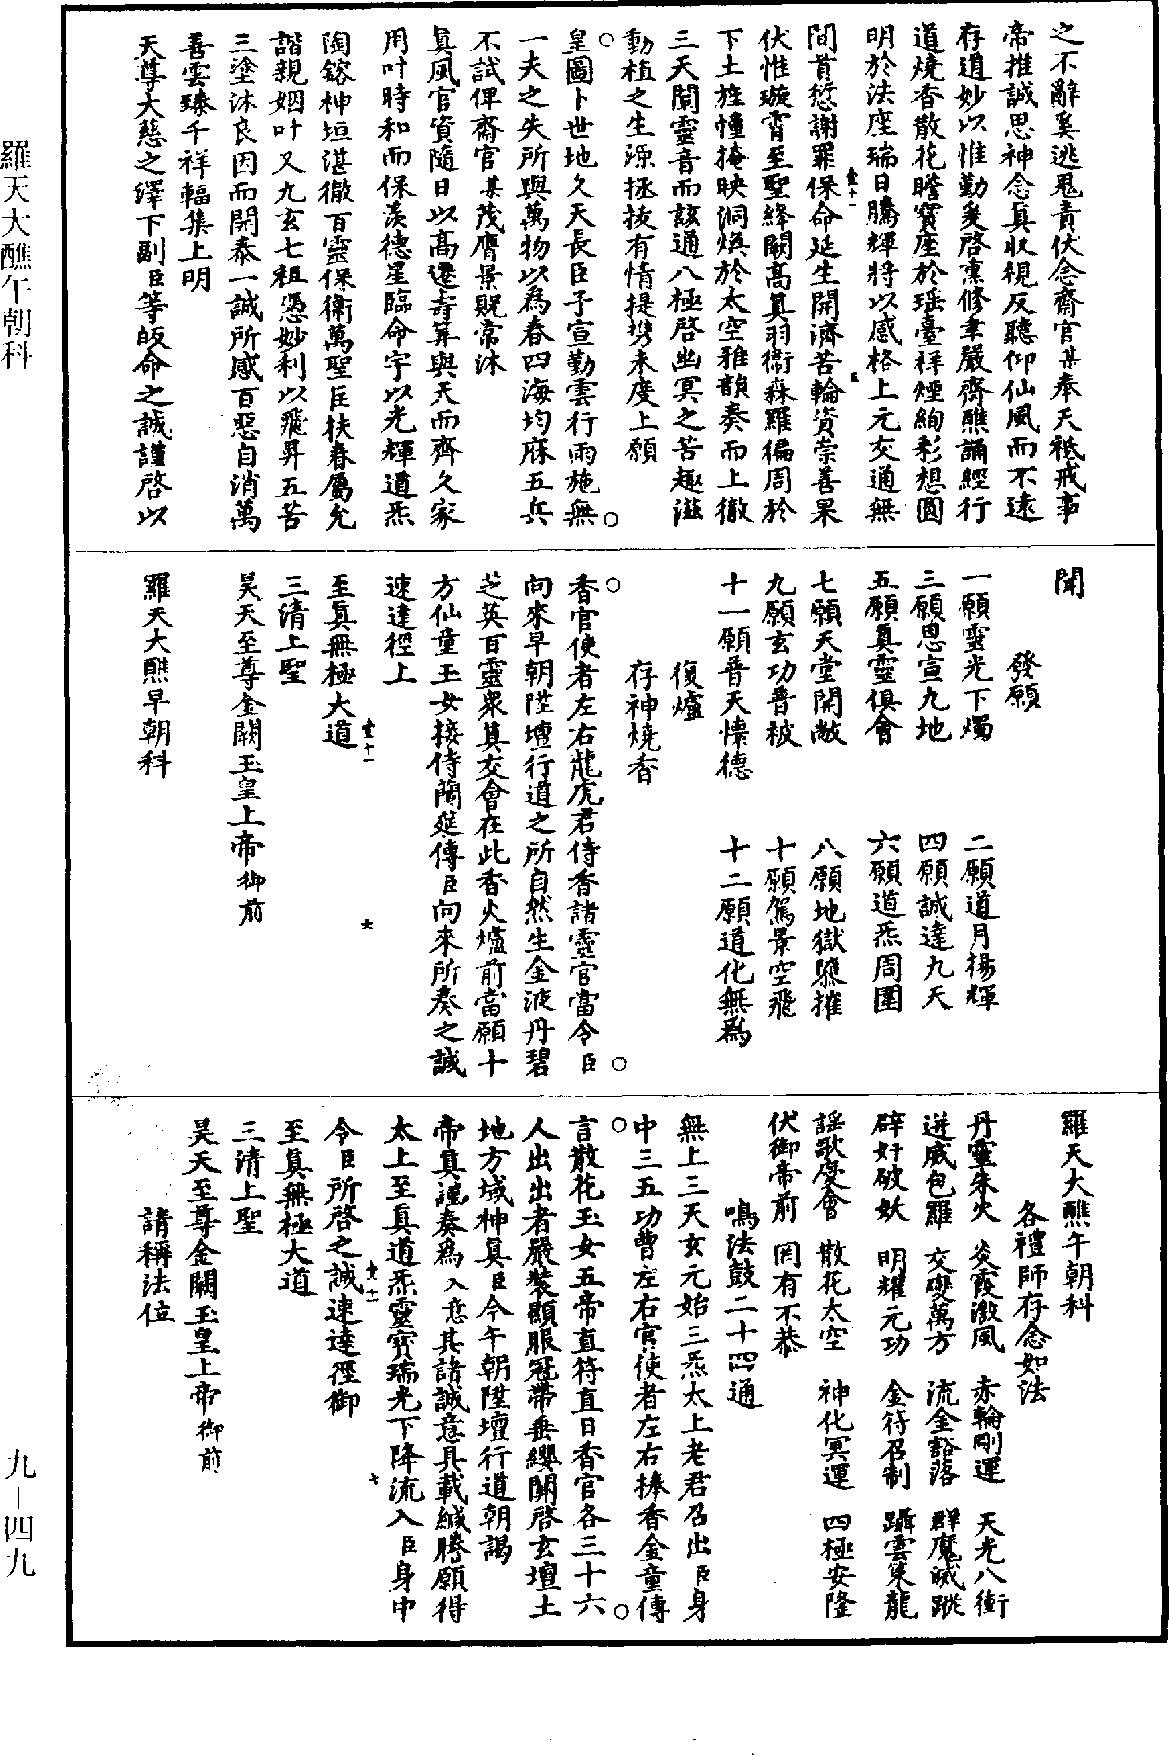 之不辭奚逃鬼責伏念齋官某奉天祗戒事
帝推誠思神念真收視反聽仰仙風而不遠
存道妙以惟勤爰啓熏修聿嚴齋醮誦經行
道燒香散花瞻寶座於瑶臺祥煙絢彩想圓
明於法座瑞日騰輝將以感格上元交通無
間首愆謝罪保命延生開濟苦輪資崇善果
伏惟璇霄至聖絳闕高真羽衛森羅徧周於
下土旌幢掩映洞煥於太空雅韻奏而上徹
三天閬靈音而該通八極啓幽冥之苦趣滋
動植之生源拯拔有情提携未度上願
皇圖卜世地久天長臣子宣勤雲行雨施無
一夫之失所與萬物以為春四海均庥五兵
不試俾齋官某茂膺景貺常沐
真風官資隨日以高遷壽筭與天而齊久家
用叶時和而保羨德星臨命宇以光輝道炁
陶鎔神垣湛徹百靈保衛萬聖匡扶眷屬允
諧親姻叶又九玄七祖憑妙利以飛昇五苦
三塗沐良因而開泰一誠所感百惡自消萬
善雲臻千祥輻集上明
天尊大慈之澤下副臣等皈命之誠謹啓以
聞
發願
一願靈光下燭　二願道月揚輝
三願恩宣九地　四願誠達九天
五願真靈俱會　六願道炁周圍
七願天堂開敞　八願地獄隳摧
九願玄功普被　十願駕景空飛
十一願普天懷德　十二願道化無為
復爐
存神燒香
香官使者左右龍虎君侍香諸靈官當令臣
向來早朝陞壇行道之所自然生金液丹碧
芝英百靈衆真交會在此香火爐前當願十
方仙童玉女接侍蘭筵傳臣向來所奏之誠
速達徑上
至真無極大道
三清上聖
昊天至尊金闕玉皇上帝御前
羅天大醮早朝科
羅天大醮午朝科
各禮師存念如法
丹靈朱火　炎霞激風　赤輪剛運　天光八衝
迸威包羅　交燮萬方　流金豁落　群魔滅蹤
辟奸破妖　明耀元功　金符召制　躡雲乘龍
謠歌慶會　散花太空　神化冥運　四極安隆
伏御帝前　罔有不恭
鳴法鼓二十四通
無上三天玄元始三炁太上老君召出臣身
中三五功曹左右官使者左右捧香金童傳
言散花玉女五帝直符直日香官各三十六
人出出者嚴裝顯服冠帶垂纓關啓玄壇土
地方域神真臣今午朝陞壇行道朝謁
帝真謹奏為入意其諸誠意具載緘縢願得
太上至真道炁靈寶瑞光下降流入臣身中
令臣所啓之誠速達徑御
至真無極大道
三清上聖
昊天至尊金闕玉皇上帝御前
請稱法位
羅天大醮午朝科
九－四九